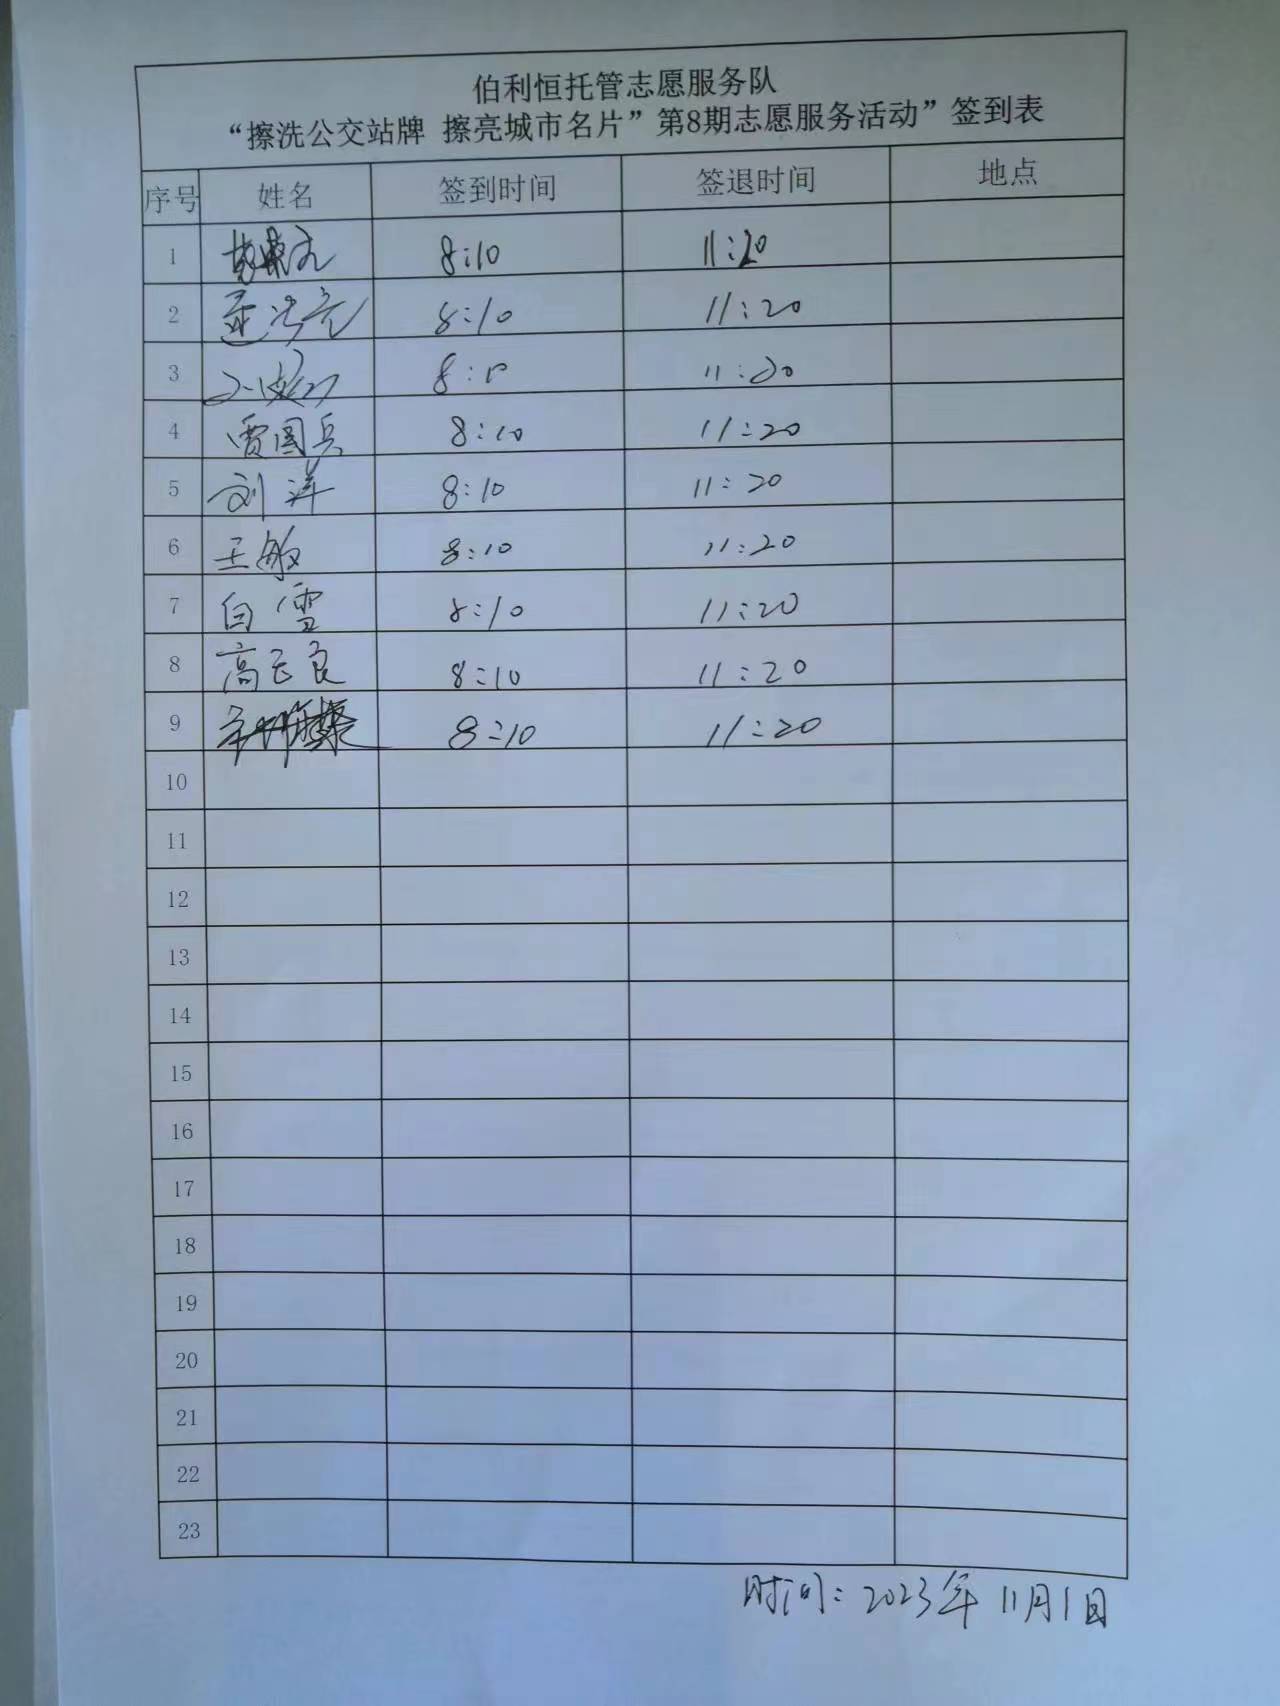 伯利恒托管志愿服务队
“擦洗公交站牌 擦亮城市名片”第8期志愿服务活动”签到表
序号 姓名 签到时间 签退时间 地点
1 8:10 11:20
2 8:10 11:20
3 8:10 11:20
4 贾国兵 8:10 11:20
5 刘洋 8:10 11:20
6 王敏 8:10 11:20
7 白雪 8:10 11:20
8 高正良 8:10 11:20
9 8:10 11:20
10
11
12
13
14
15
16
17
18
19
20
21
22
23
时间:2023年11月1日